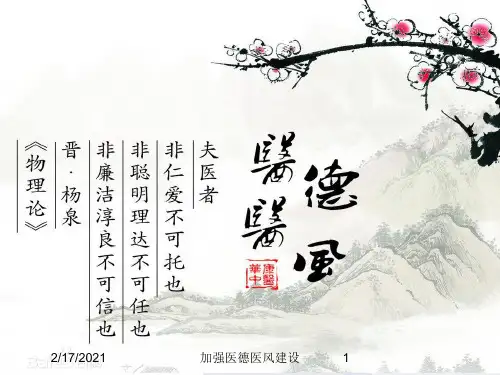 醫德
醫風
夫医者
非仁爱不可托也
非聪明理达不可任也
非廉洁淳良不可信也
晋·杨泉
《物理论》
2/17/2021
加强医德医风建设
1